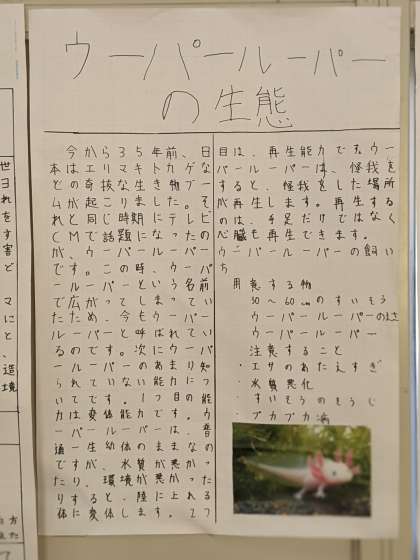 ウーパールーパー
の生態
今から35年前、日
本はエリマキトカゲな
どの奇抜な生き物ブー
ムが起こりました。そ
れと同じ時期にテレビ
CMで話題になったの
が、ウーパールーパー
です。この時、ウーパ
ールーパーという名前
で広がってしまってい
たため、今もウーパー
ルーパーと呼ばれてい
るのです。次にウーパ
ールーパーのあまり知
られていない能力につ
いてです。1つ目の能
力は変体能力です。ウ
ーパールーパーは、普
通一生幼体のままなの
ですが、水質が悪かっ
たり、環境が悪かった
りすると、陸に上れる
体に変体します。2つ
目は、再生能力です。ウー
パールーパーは、怪我を
すると、怪我をした場所
が再生します。再生する
のは、手足だけではなく
心臓も再生できます。
ウーパールーパーの飼い
ち
用意する物
50〜60cmのすいそう
ウーパールーパーのえさ
ウーパールーパー
注意すること
・エサのあたえすぎ
・水質悪化
・すいそうのそうじ
・プカプカ病